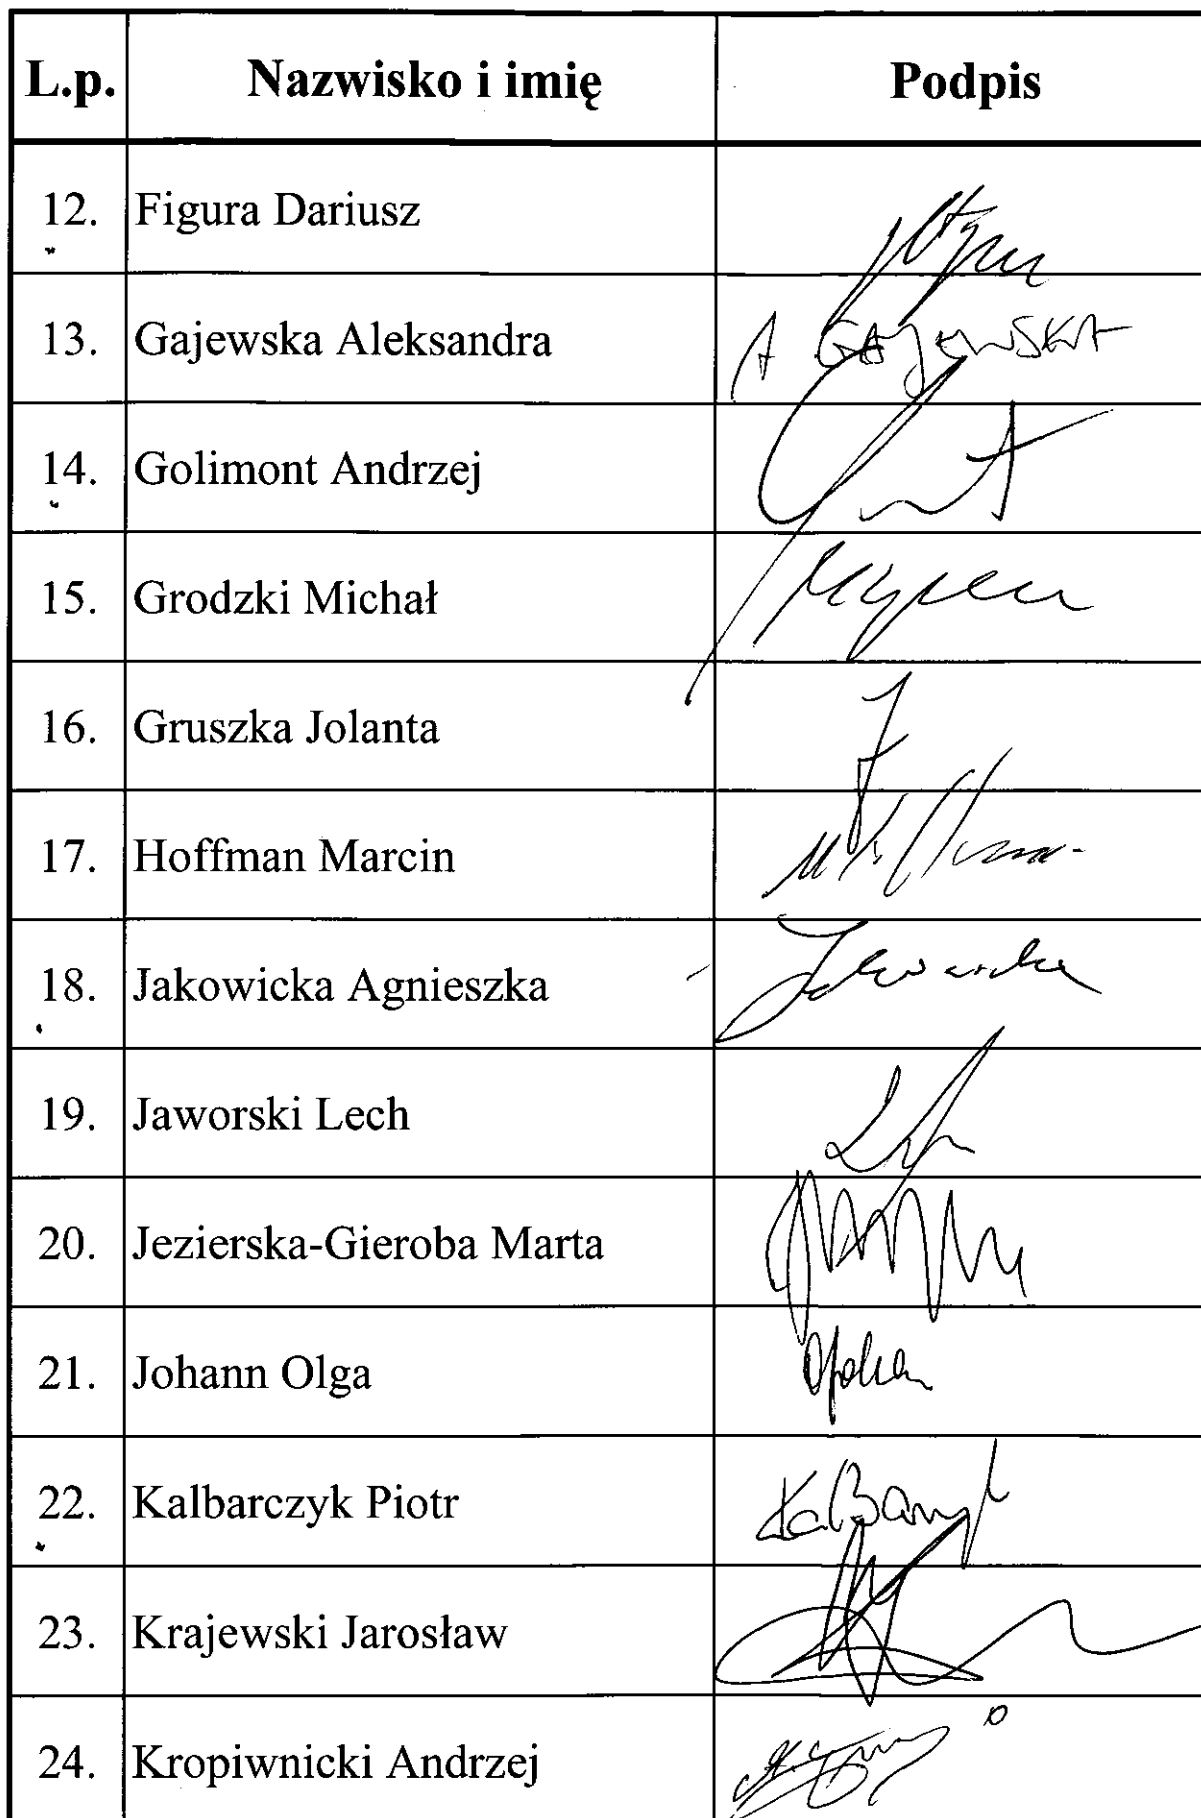 L.p. Nazwisko i imię Podpis
12. Figura Dariusz
13. Gajewska Aleksandra A GAJEWSKA
14. Golimont Andrzej
15. Grodzki Michał
16. Gruszka Jolanta
17. Hoffman Marcin
18. Jakowicka Agnieszka
19. Jaworski Lech
20. Jezierska-Gieroba Marta
21. Johann Olga
22. Kalbarczyk Piotr
23. Krajewski Jarosław
24. Kropiwnicki Andrzej